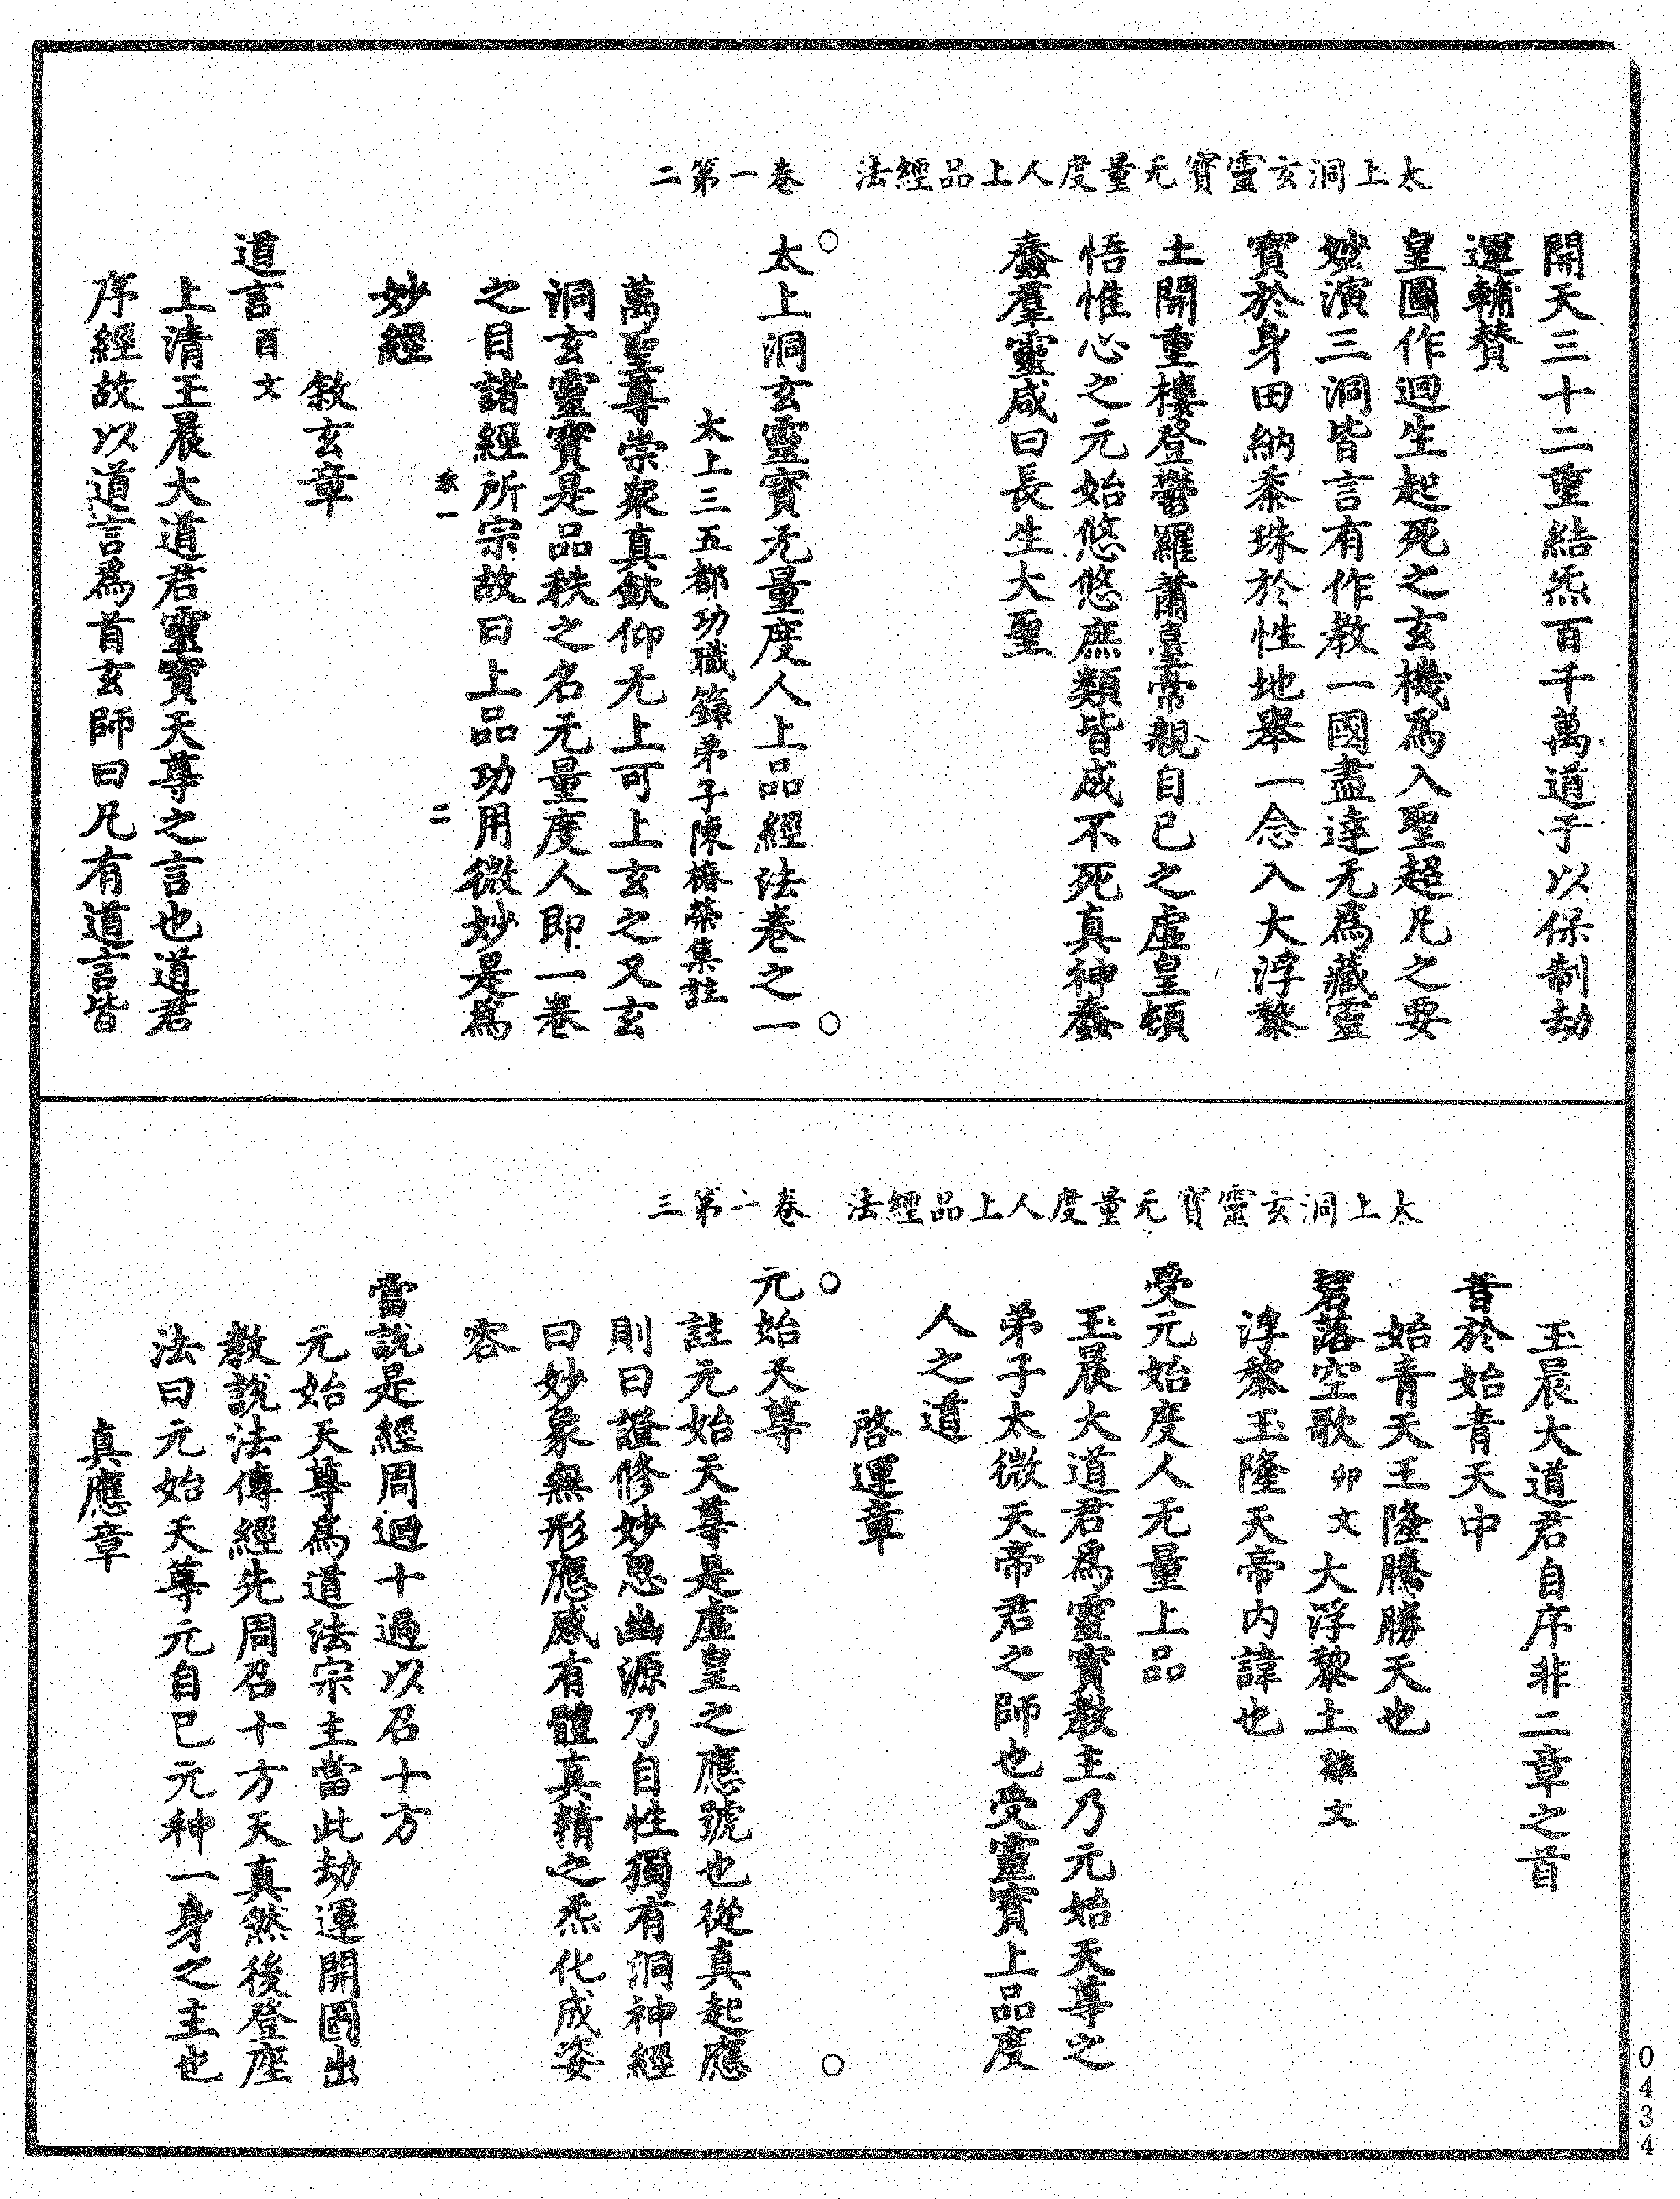 太上洞玄靈寶无量度人上品經法　卷一第二
開天三十二重結炁百千萬道于以保制劫
運輔贊
皇圖作迴生起死之玄機為入聖超凡之要
妙演三洞皆言有作教一國盡達无為藏靈
寶於身田納黍珠於性地舉一念入大浮黎
土開重樓登鬱羅蕭臺帝親自己之虛皇頓
悟惟心之元始悠悠庶類皆成不死真神蠢
蠢羣靈咸曰長生大聖
太上洞玄靈寶无量度人上品經法卷之一
太上三五都功職籙弟子陳椿榮集註
萬聖尊崇衆真欽仰无上可上玄之又玄
洞玄靈寶是品秩之名无量度人即一卷
之目諸經所宗故曰上品功用微妙是為
一　二
妙經
敘玄章
道言百文
上清玉晨大道君靈寶天尊之言也道君
序經故以道言為首玄師曰凡有道言皆
太上洞玄靈寶无量度人上品經法　卷一第三
玉晨大道君自序非二章之首
昔於始青天中
始青天王隆騰勝天也
碧落空歌卯文大浮黎土離文
浮黎玉隆天帝內諱也
受元始度人无量上品
玉晨大道君為靈寶教主乃元始天尊之
弟子太微天帝君之師也受靈寶上品度
人之道
啓運章
元始天尊
註元始天尊是虛皇之應號也從真起應
則曰證修妙思幽源乃自性獨有洞神經
曰妙象無形應感有體真精之炁化成姿
容
當說是經周迴十過以召十方
元始天尊為道法宗主當此劫運開圖出
教說法傳經先周召十方天真然後登座
法曰元始天尊元自己元神一身之主也
真應章
0434